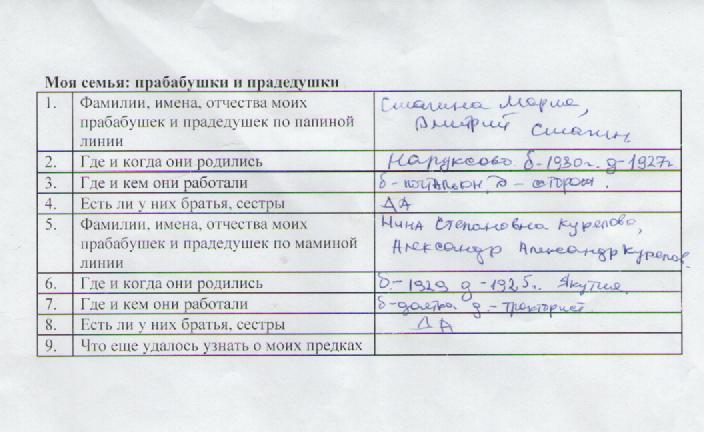 Моя семья: прабабушки и прадедушки
1. Фамилии, имена, отчества моих прабабушек и прадедушек по папиной линии
Сталина Мария,
Дмитрий Сталин
2. Где и когда они родились Наруксово б-1930г. д-1927г
3. Где и кем они работали б-почтальон, д- сторож.
4. Есть ли у них братья, сестры ДА
5. Фамилии, имена, отчества моих прабабушек и прадедушек по маминой линии
Нина Степановна Курелово,
Александр Александр Курелов.
6. Где и когда они родились б-1929 д-1925. Якутия.
7. Где и кем они работали б-доярка д.-тракторист.
8. Есть ли у них братья, сестры ДА
9. Что еще удалось узнать о моих предках